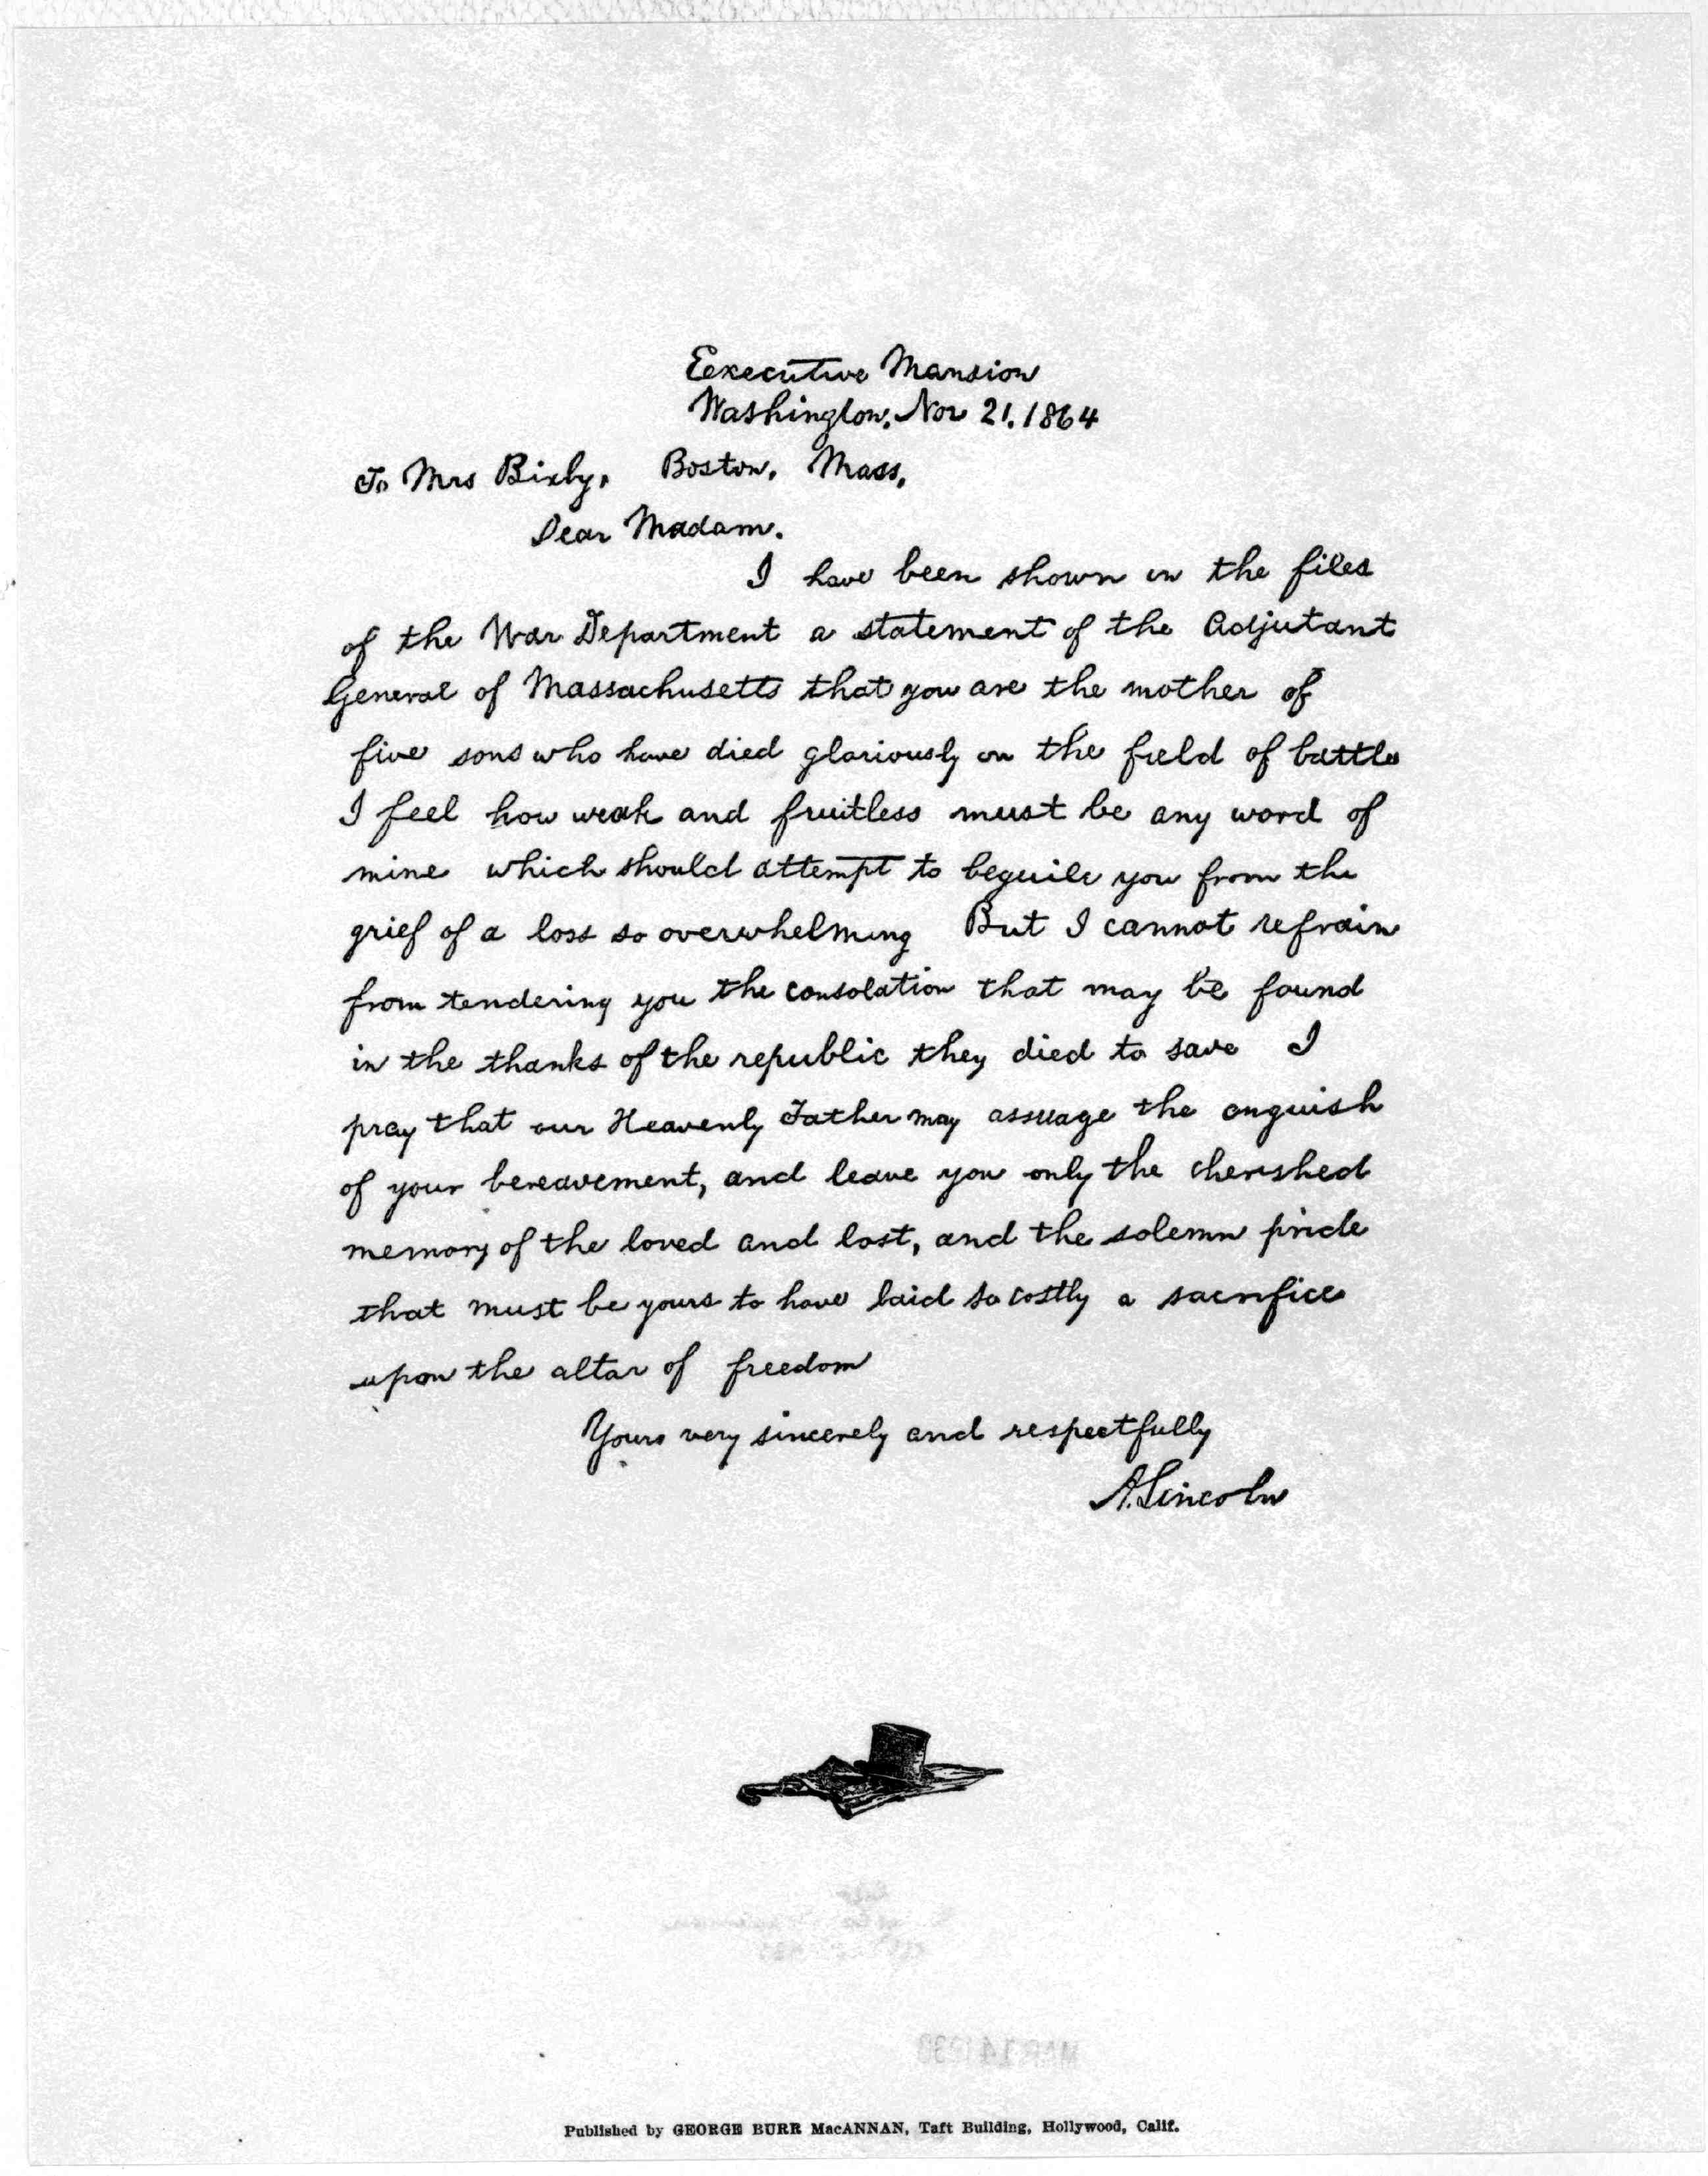 Executive Mansion
Washington, Nov 21. 1864
To Mrs Bixby, Boston, Mass,
Dear Madam.
I have been shown in the files
of the War Department a statement of the Adjutant
General of Massachusetts that you are the mother of
five sons who have died gloriously on the field of battle
I feel how weak and fruitless must be any word of
mine which should attempt to beguile you from the
grief of a loss so overwhelming But I cannot refrain
from tendering you the consolation that may be found
in the thanks of the republic they died to save I
pray that our Heavenly Father may assuage the anguish
of your bereavement, and leave you only the cherished
memory of the loved and lost, and the solemn pride
that must be yours to have laid so costly a sacrifice
upon the altar of freedom
Yours very sincerely and respectfully
A. Lincoln
Published by GEORGE BURR MacANNAN, Taft Building, Hollywood, Calif.